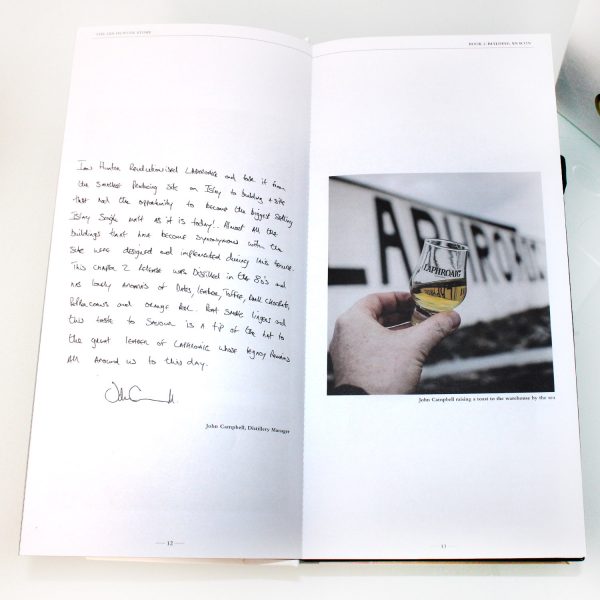 THE IAN HUNTER STORY
Ian Hunter Revolutionised LAPHROAIG and took it from
the smallest Producing site on Islay to building a site
that had the opportunity to become the biggest Selling
Islay Single malt as it is today!. Almost All the
buildings that have become synonymous with the
site were designed and implemented during his tenure.
This chapter 2 Release was Distilled in the 80's and
has lovely aroma's of Dates, leather, Toffee, Dark Chocolate,
Peppercorns and orange Peel. Peat Smoke lingers and
this taste to Saviour is a tip of the hat to
the great leader of LAPHROAIG whose legacy Remains
All Around us to this day.
John Campbell, Distillery Manager
12
BOOK 2: BUILDING AN ICON
LAPHROAIG
LAPHROAIG
John Campbell raising a toast to the warehouse by the sea
13